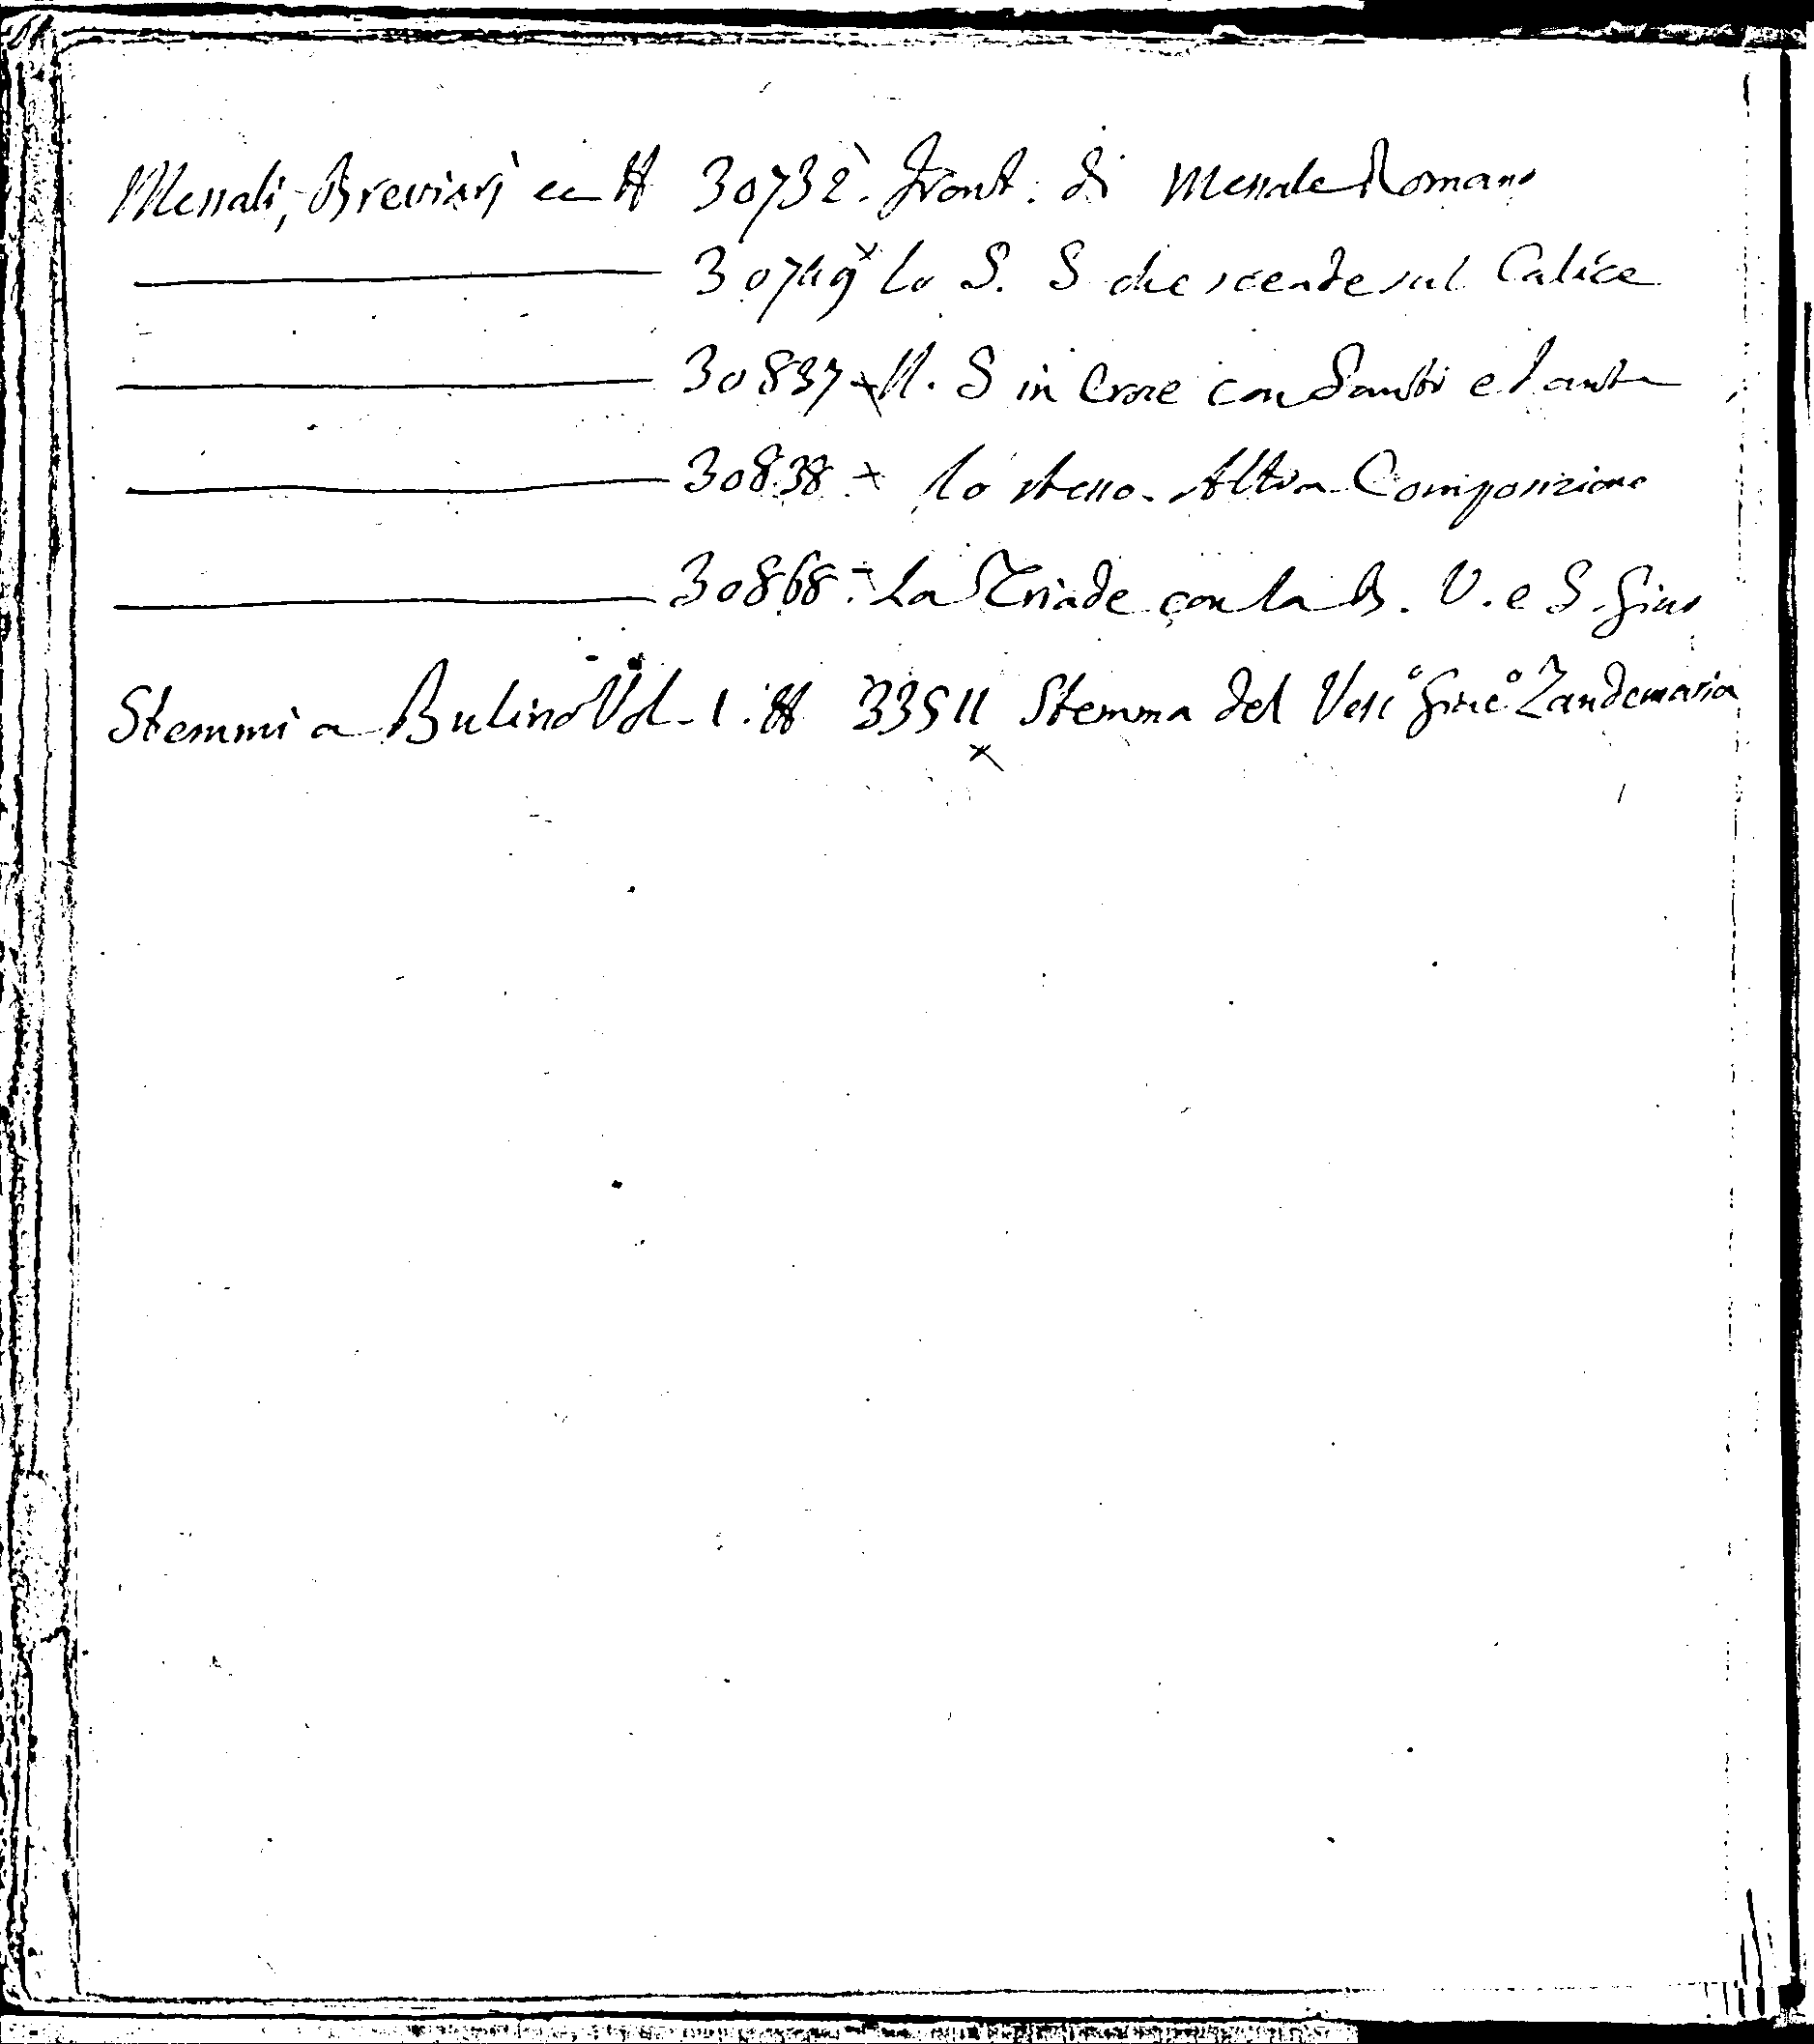 Messali, Breviarj ec # 30732. Front. di Messale Romano
30749 x Lo S. S che scende sul Calice
30837 x N. S in Croce con Santi e Sante
30838 x Lo stesso. Altra Composizione
30868. La Triade con la B. V. e S. Gius
Stemmi a Bulino Vol. 1. # 33511 Stemma del Vesc° Zandemaria
x